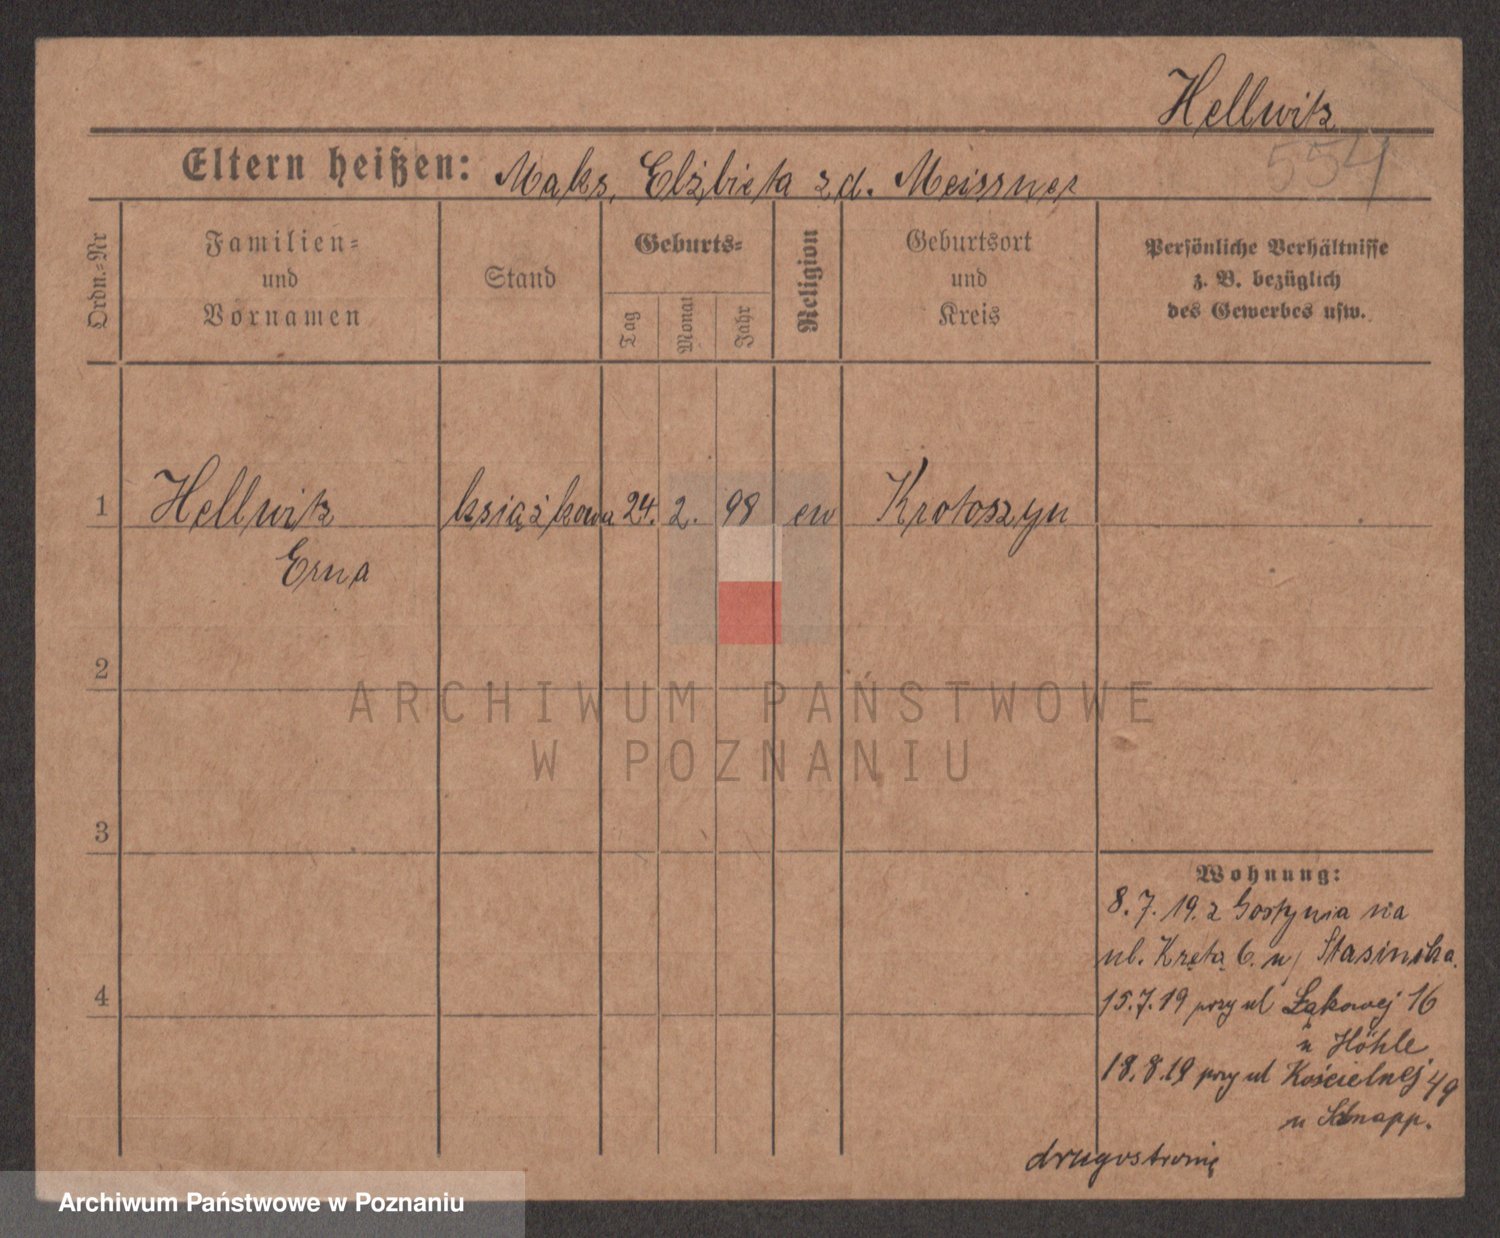 Hellwitz
554
Eltern heißen: Maks, Elżbieta z d. Meissner
Ordn.-Nr
Familien-
und
Vornamen
Stand
Geburts-
Tag
Monat
Jahr
Religion
Geburtsort
und
Kreis
Persönliche Verhältnisse
z. B. bezüglich
des Gewerbes usw.
1 Hellwitz książkowa 24. 2. 98 ew Krotoszyn
Erna
2
ARCHIWUM PAŃSTWOWE
W POZNANIU
3
Wohnung:
8. 7. 19. z Gostynia na
ul. Kręta 6. u/ Stasinska.
4
15. 7. 19 przy ul Łąkowej 16
u Höhle
18. 8. 19 przy ul Kościelnej 49
u Knapp.
drugostronię
Archiwum Państwowe w Poznaniu